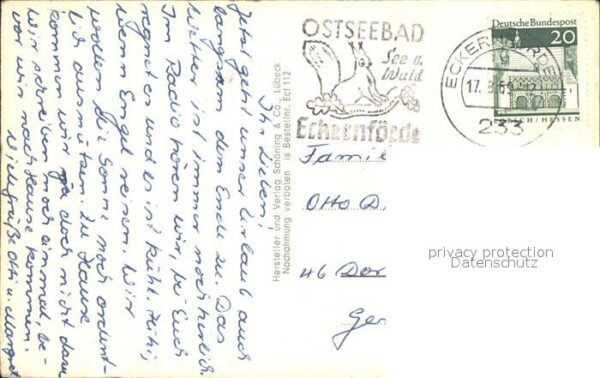 Ihr Lieben!
Jetzt geht unser Urlaub auch
langsam dem Ende zu. Das
Wetter ist immer noch herrlich.
Im Radio hören wir, bei Euch
regnet es und es ist kühl.
wenn Engel reisen. Wir
wollen die Sonne noch ordent-
lich ausnutzen. Zu Hause
kommen wir ja doch nicht dazu
Wir schreiben noch einmal, be-
vor wir nach Hause kommen.
Viele Grüße Otti u. Margret
Hersteller und Verlag Schöning & Co., Lübeck
Nachahmung verboten Is Bestellnr. Ecf 112
OSTSEEBAD
See u.
Wald
Eckernförde
ECKERNFÖRDE
17. 9.69
233
Deutsche Bundespost
20
LORSCH/HESSEN
Famil
Otto D
46 Dor
Ger
privacy protection
Datenschutz